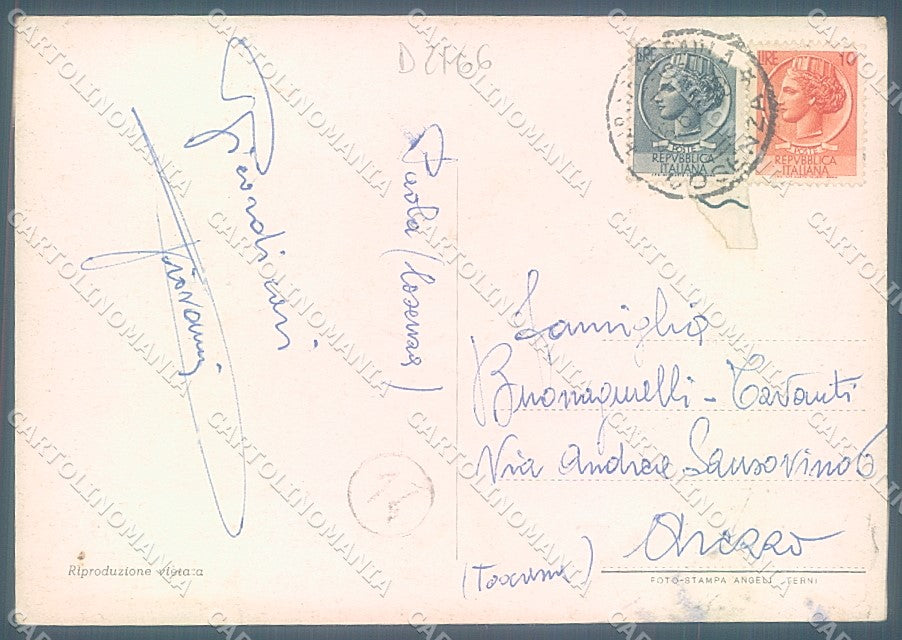 D 2766
LIRE
REPVBBLICA
ITALIANA
LIRE 10
POSTE
REPVBBLICA
ITALIANA
PAOLA
COSENZA
Paola (Cosenza)
Giovanni
Famiglia
Buonaguelli - Tavanti
Via Andrea Sansovino 6
Arezzo
(Toscana)
Riproduzione vietata
FOTO-STAMPA ANGELI TERNI
CARTOLINOMANIA